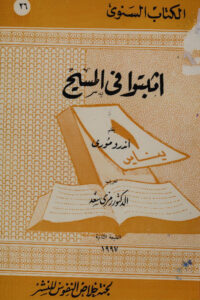 الكتاب السنوى
٢٦
اثبتوا فى المسيح
بقلم
اندرو مورى
يناير
الدكتور رمزى سعد
الطبعة الثانية
١٩٦٧
لجنة خلاص النفوس للنشر